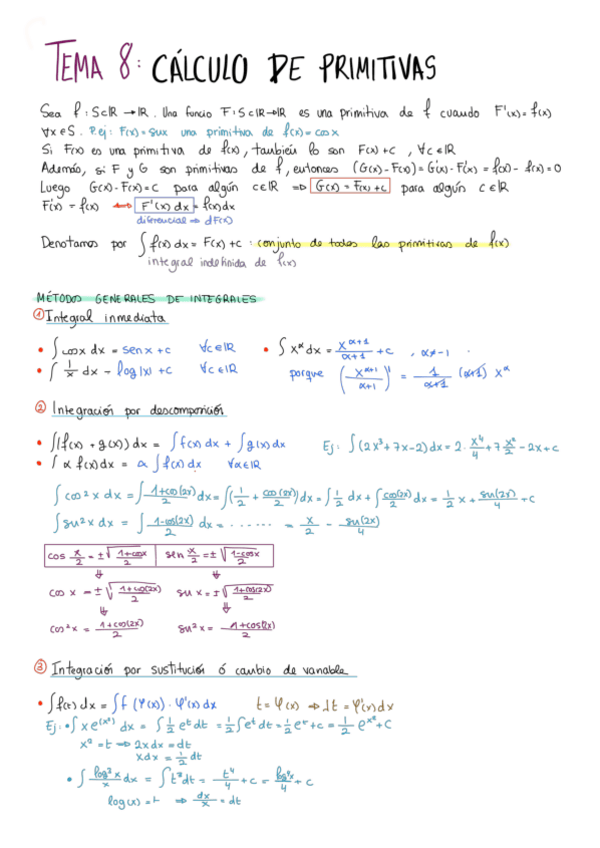 TEMA 8: CÁLCULO DE PRIMITIVAS
Sea f: S⊂ℝ → ℝ. Una funcio F: S⊂ℝ→ℝ es una primitiva de f cuando F'(x) = f(x)
∀x∈S. P.ej: F(x) = sux una primitiva de f(x) = cosx
Si F(x) es una primitiva de f(x), también lo son F(x)+c, ∀c∈ℝ
Además, si F y G son primitivas de f, entonces (G(x)-F(x))' = G'(x)-F'(x) = f(x)-f(x) = 0
Luego G(x)-F(x) = c para algún c∈ℝ ⇒ G(x) = F(x)+c para algún c∈ℝ
F'(x) = f(x) ⟺ F'(x)dx = f(x)dx
diferencial ⇒ dF(x)
Denotamos por ∫f(x)dx = F(x)+c : conjunto de todas las primitivas de f(x)
integral indefinida de f(x)
MÉTODOS GENERALES DE INTEGRALES
① Integral inmediata
• ∫cosx dx = senx + c ∀c∈ℝ • ∫x^α dx = x^(α+1)/(α+1) + c, α≠-1
• ∫1/x dx = log|x| + c ∀c∈ℝ porque (x^(α+1)/(α+1))' = 1/(α+1) (α+1) x^α
② Integración por descomposición
• ∫(f(x)+g(x))dx = ∫f(x)dx + ∫g(x)dx Ej: ∫(2x³+7x-2)dx = 2·x⁴/4 + 7x²/2 - 2x + c
• ∫αf(x)dx = α∫f(x)dx ∀α∈ℝ
∫cos²x dx = ∫(1+cos(2x))/2 dx = ∫(1/2 + cos(2x)/2)dx = ∫1/2 dx + ∫cos(2x)/2 dx = 1/2 x + su(2x)/4 + c
∫su²x dx = ∫(1-cos(2x))/2 dx = ...... = x/2 - su(2x)/4
cos x/2 = ±√((1+cosx)/2) sen x/2 = ±√((1-cosx)/2)
⇓ ⇓
cos x = ±√((1+cos(2x))/2) su x = ±√((1+cos(2x))/2)
⇓ ⇓
cos²x = (1+cos(2x))/2 su²x = (1+cos(2x))/2
③ Integración por sustitución ó cambio de variable
• ∫f(t)dx = ∫f(φ(x))·φ'(x)dx t = φ(x) ⇒ dt = φ'(x)dx
Ej: • ∫xe^(x²) dx = ∫1/2 e^t dt = 1/2∫e^t dt = 1/2 e^t + c = 1/2 e^(x²) + c
x² = t ⇒ 2xdx = dt
xdx = 1/2 dt
• ∫log³x/x dx = ∫t³dt = t⁴/4 + c = log⁴x/4 + c
log(x) = t ⇒ dx/x = dt